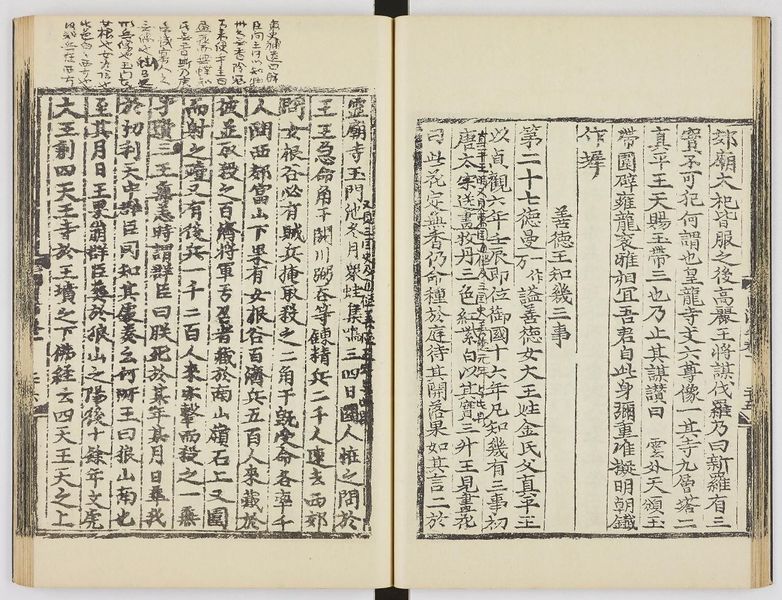 郊廟大祀皆服之後高麗王將謀伐羅乃曰新羅有三
寶不可犯何謂也皇龍寺丈六尊像一其寺九層塔二
真平王天賜玉帶三也乃止其謀讃曰 雲外天頒玉
帶圍辟雍龍袞雅相宜吾君自此身彌重准擬明朝鐵
作墀
善德王知幾三事
第二十七德曼一作万謚善德女大王姓金氏父真平王
以貞觀六年壬辰即位御國十六年凡知幾有三事初
唐太宗送畫牧丹三色紅紫白以其實三升王見畫花
曰此花定無香仍命種於庭待其開落果如其言二於
靈廟寺玉門池冬月衆蛙集鳴三四日國人怪之問於
王王急命角干閼川弼呑等鍊精兵二千人速去西郊
問女根谷必有賊兵掩取殺之二角干旣受命各率千
人問西郊富山下果有女根谷百濟兵五百人來藏於
彼並取殺之百濟將軍亐召者藏於南山嶺石上又圍
而射之殪又有後兵一千二百人來亦擊而殺之一無
孑遺三王無恙時謂群臣曰朕死於某年某月日葬我
於忉利天中群臣罔知其處奏云何所王曰狼山南也
至其月日王果崩群臣葬於狼山之陽後十餘年文虎
大王創四天王寺於王墳之下佛經云四天王天之上